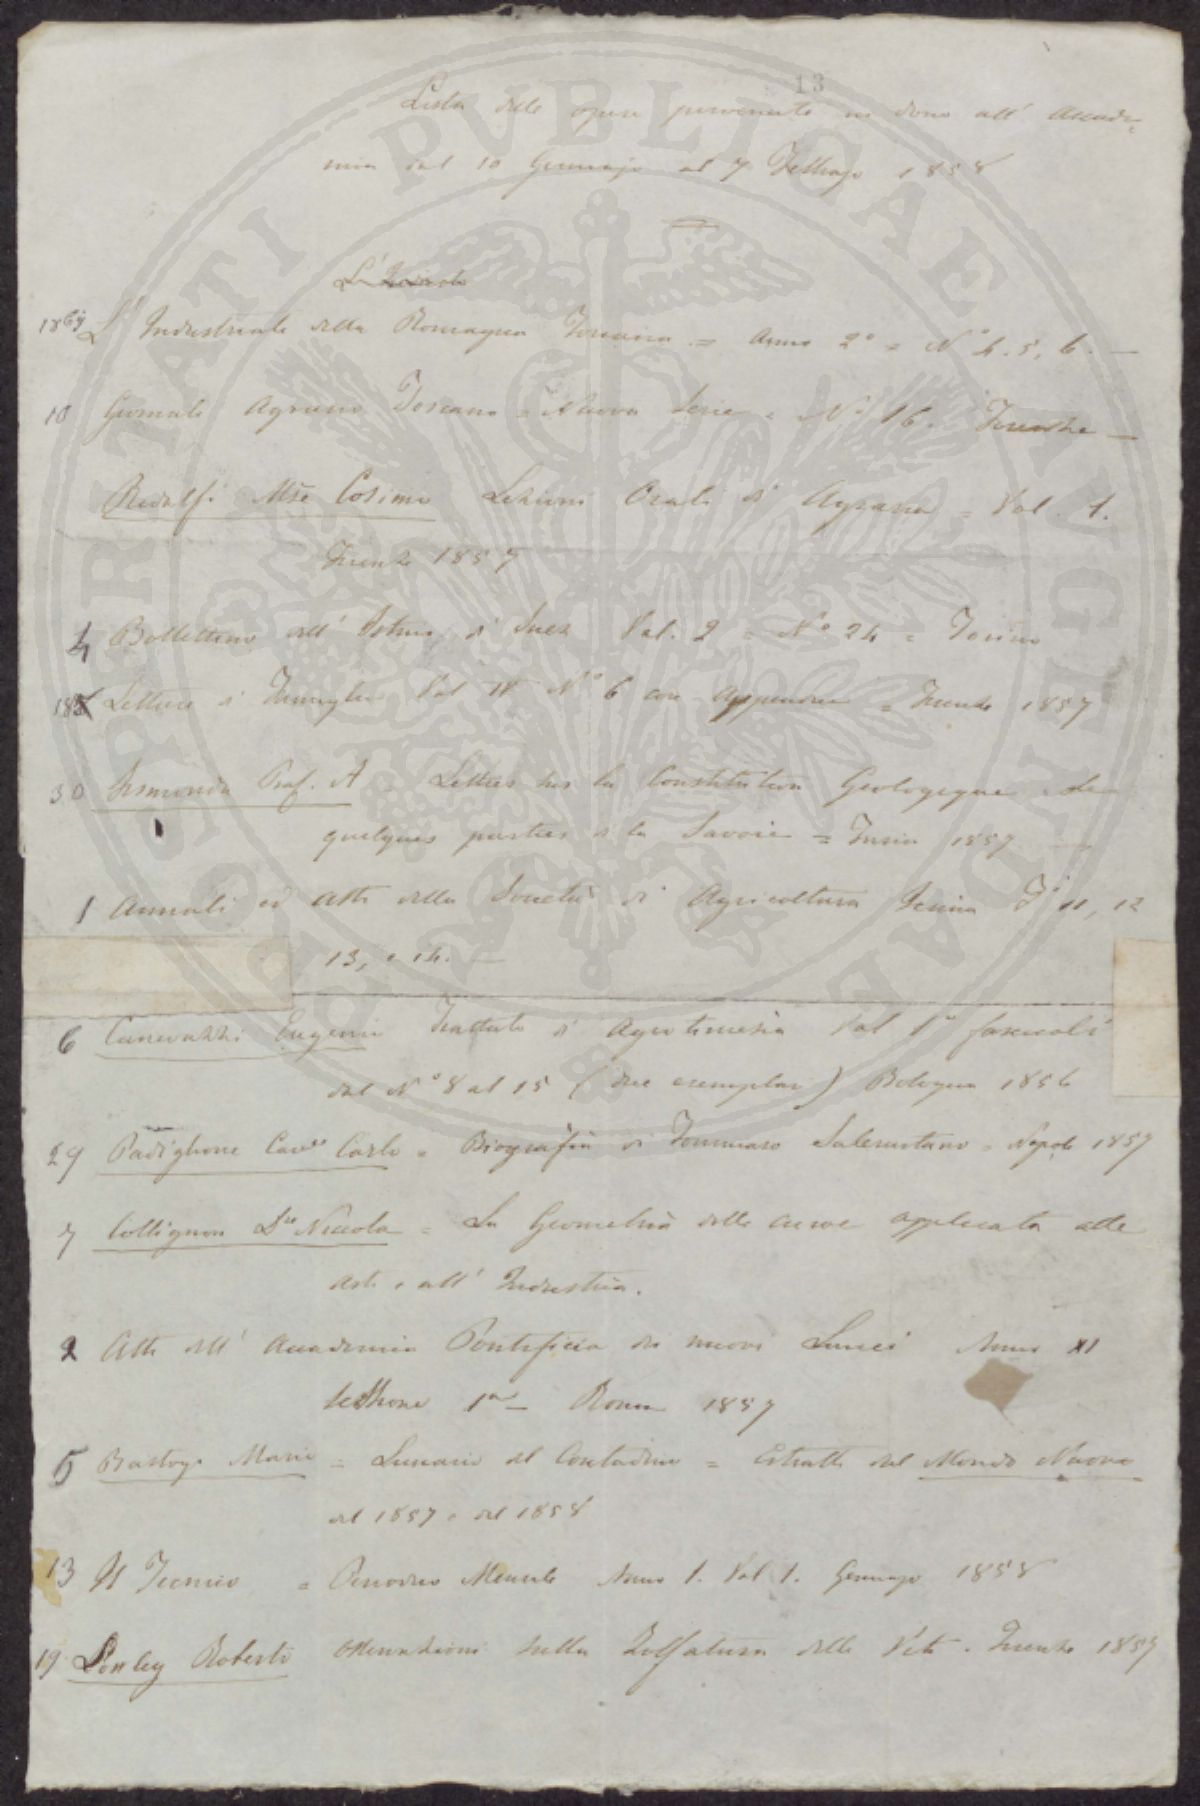 13
Lista delle opere pervenute in dono all' Accade=
mia dal 10 Gennajo al 7 Febbrajo 1858
L'Industriale della Romagna Toscana = Anno 2° = N° 4. 5. 6. —
10 Giornale Agrario Toscano = Nuova Serie = N° 16. Firenze —
Ridolfi Mse Cosimo Lezioni Orali di Agraria = Vol. 1.
Firenze 1857
4 Bollettino dell' Istmo di Suez Vol. 2 = N° 24 = Torino
Letture di Famiglia Vol IX N° 6 con Appendice = Firenze 1857
30 Sismonda Prof. A. Lettres sur la Constitution Geologique de
quelques parties de la Savoie = Turin 1857 —
1 Annali ed Atti della Società di Agricoltura Jesina F. 11, 12
13, e 14. —
6 Canevazzi Eugenio Trattato di Agrotimesia Vol 1° fascicoli
dal N° 8 al 15 (due esemplari) Bologna 1856
29 Padiglione Cav. Carlo = Biografia di Tommaso Salernitano = Napoli 1857
7 Collignon Dre Niccola = La Geometria delle curve applicata alle
arti e all' Industria.
2 Atti dell' Accademia Pontificia dei nuovi Lincei Anno XI
Sessione 1a — Roma 1857
5 Bastogi Mario = Lunario del Contadino = Estratti del Mondo Nuovo
del 1857 e del 1858
13 Il Tecnico = Periodico Mensile Anno 1. Vol 1. Gennajo 1858
19 Lawley Roberto Osservazioni sulla Zolfatura delle Viti. Firenze 1857